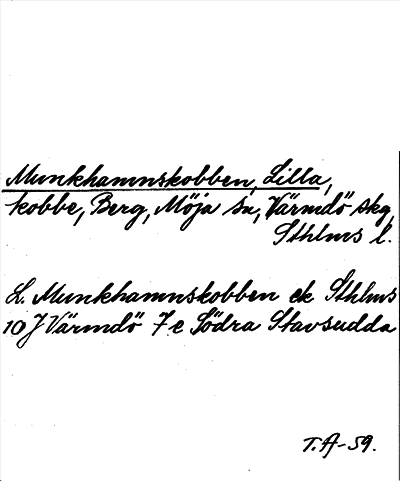 Munkhamnskobben, Lilla,
kobbe, Berg, Möja sn, Värmdö skg,
Sthlms l.
L. Munkhamnskobben ek Sthlms
10 J Värmdö 7 e Södra Stavsudda
T.A-59.